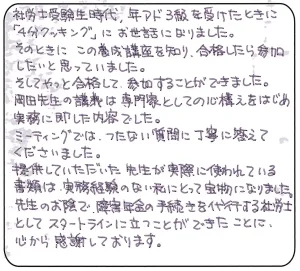 社労士受験生時代、年アド3級を受けたときに
「4分クッキング」にお世話になりました。
そのときにこの養成講座を知り、合格したら参加
したいと思っていました。
そしてやっと合格して参加することができました。
岡田先生の講義は専門家としての心構えをはじめ
実務に即した内容でした。
ミーティングでは、つたない質問に丁寧に答えて
くださいました。
提供していただいた先生が実際に使われている
書類は、実務経験のない私にとって宝物になりました。
先生のお陰で、障害年金の手続きを代行する社労士
としてスタートラインに立つことができたことに、
心から感謝しております。